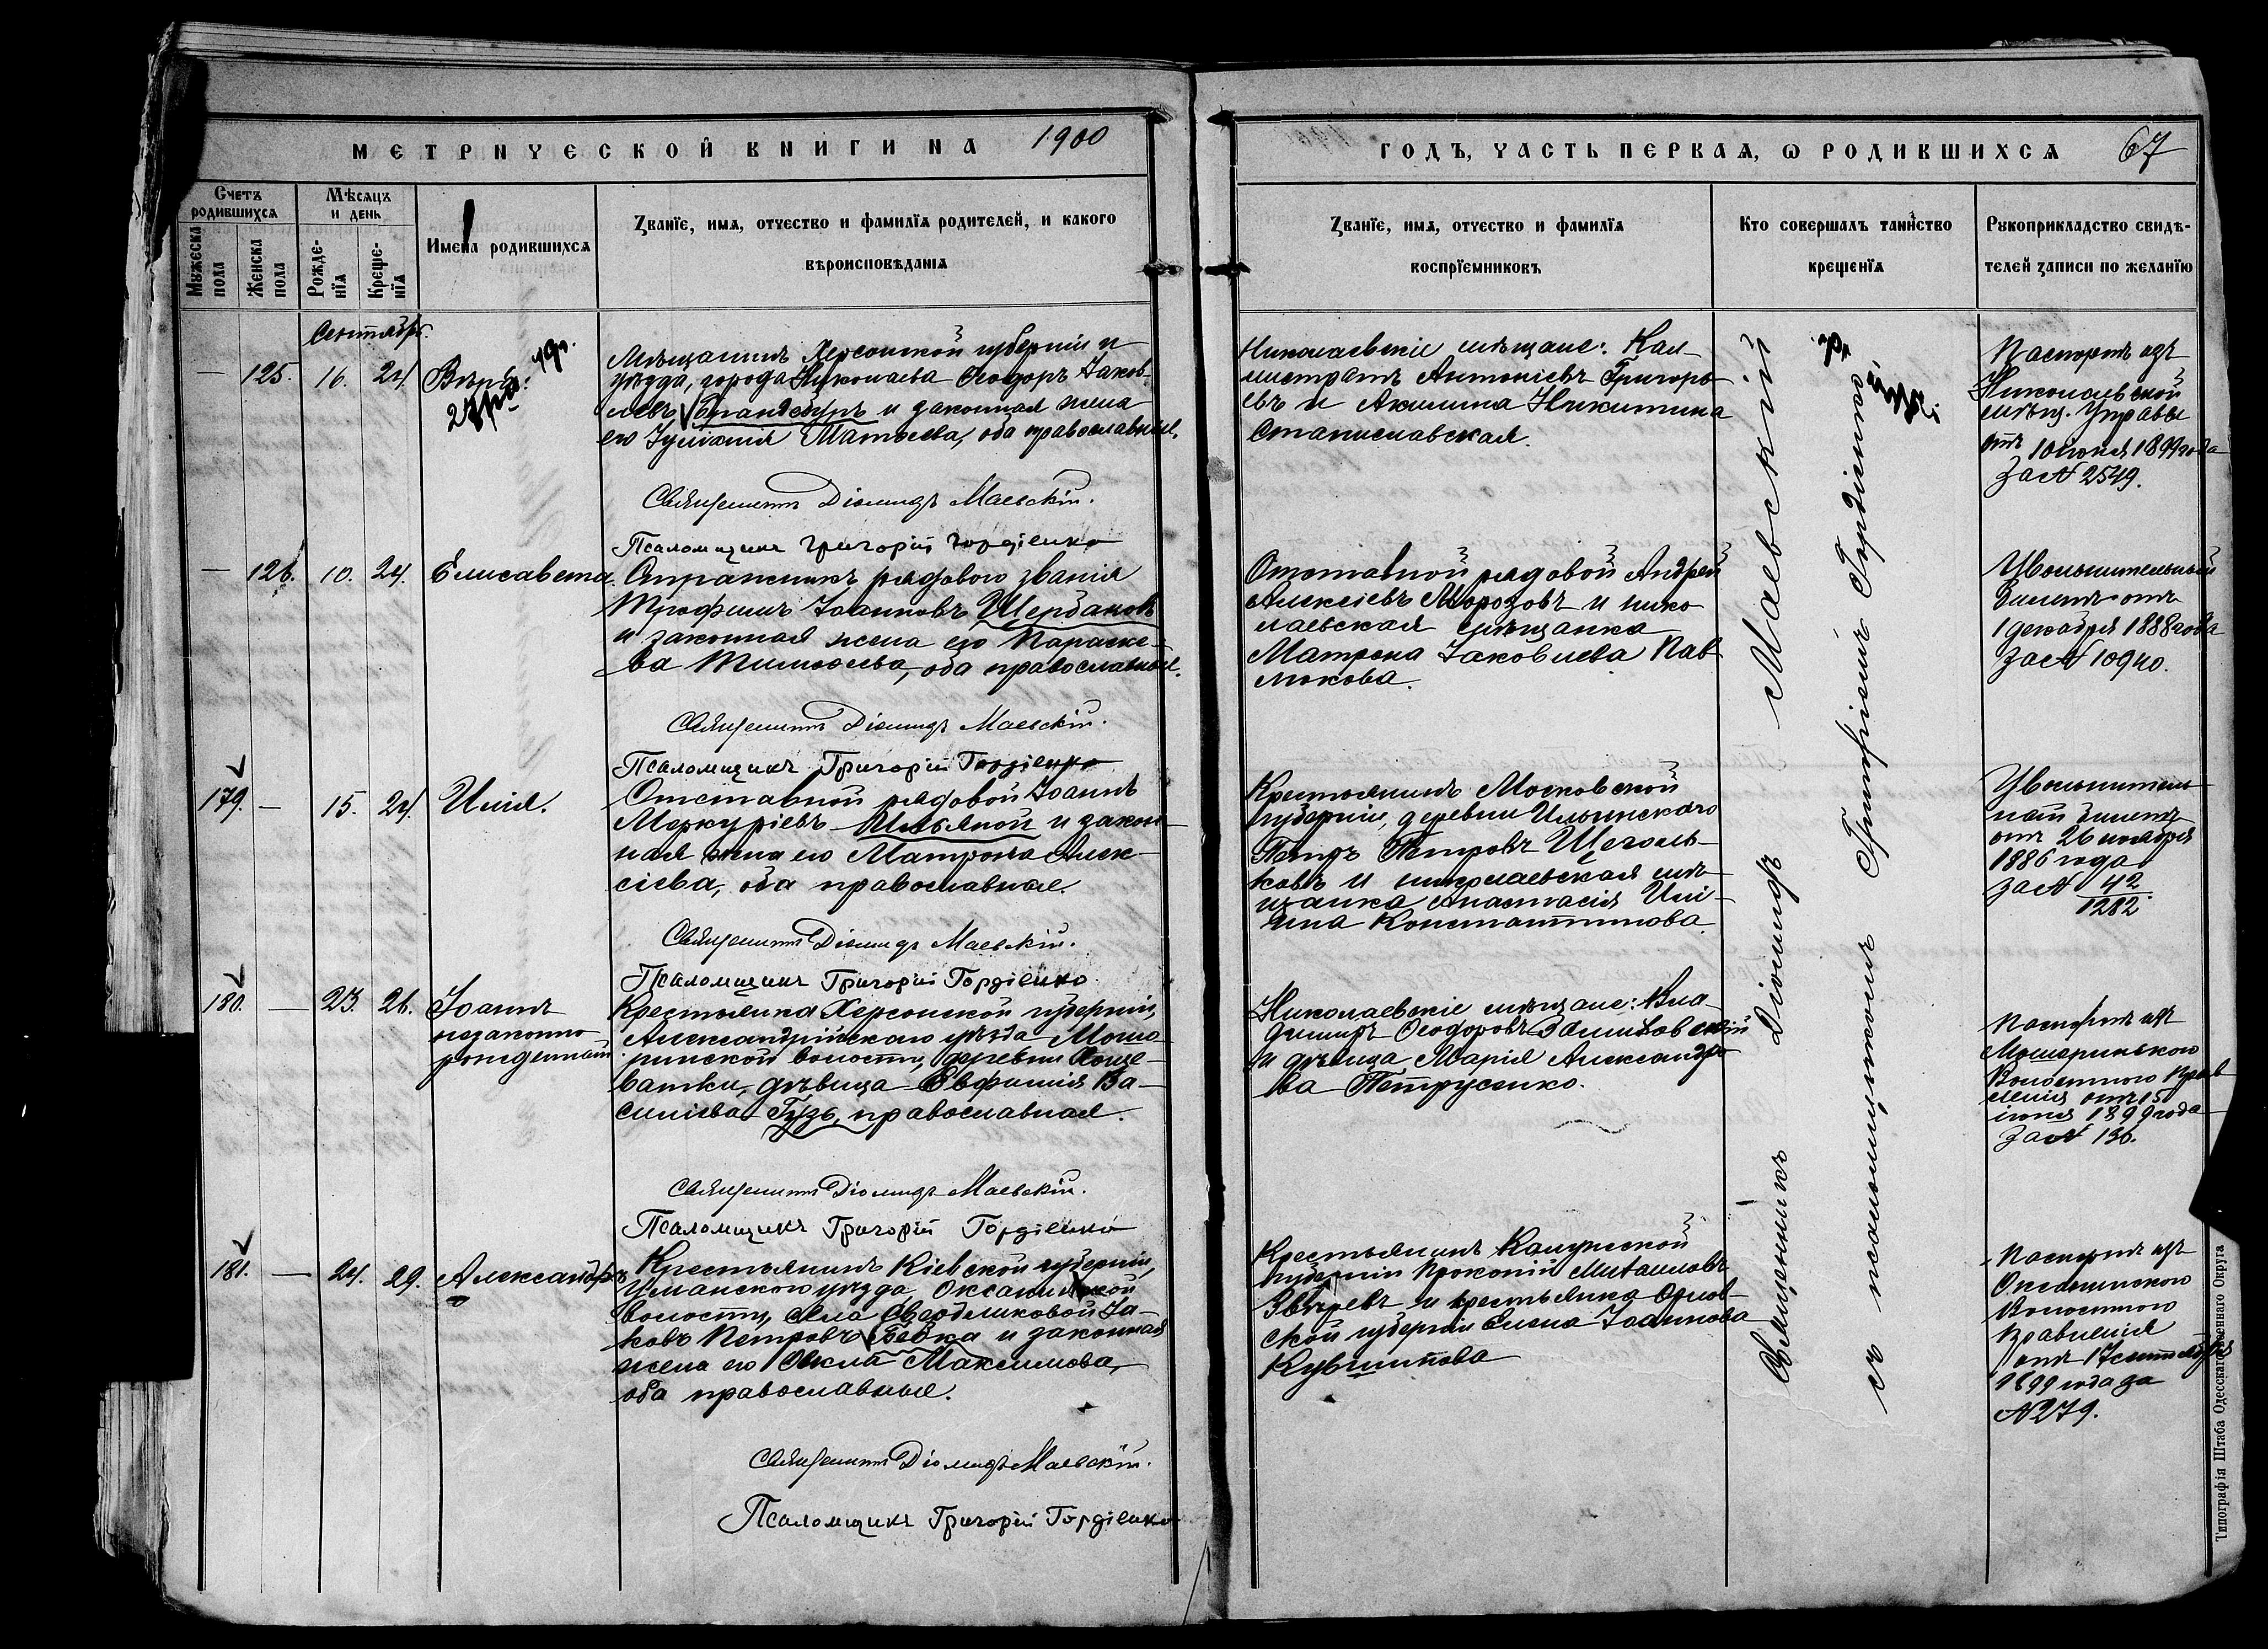 МЕТРИЧЕСКОЙ КНИГИ НА 1900
ГОДЪ, ЧАСТЬ ПЕРВАЯ, Ѡ РОДИВШИХСЯ 67
Счетъ родившихся
Мужеска пола
Женска пола
Мѣсяцъ и день
Рождѐнїя
Крещенїя
Имена родившихся
Званїе, имя, отчество и фамилїя родителей, и какого
вѣроисповѣданїя
Званїе, имя, отчество и фамилїя
воспрїемниковъ
Кто совершалъ таинство
крещенїя
Рукоприкладство свидѣ-
телей записи по желанїю
Сентябрь.
— 125. 16. 24. Вѣра.
Мѣщанинъ Херсонской губерніи и
уѣзда, города Николаева Ѳеодоръ Іаков-
левъ Брандебуръ и законная жена
его Іуліанія Матѳеева, оба православные.
Священникъ Діомидъ Маевскій.
Псаломщикъ Григорій Гордіенко
Николаевскіе мѣщане: Кал-
листратъ Антоніевъ Григорь-
евъ и Акилина Никитина
Станиславская.
Паспортъ изъ
Николаевской
мѣщ. Управы
отъ 10 июня 1899 года
за № 2549.
— 126. 10. 24. Елисавета.
Стражникъ рядового званія
Трофимъ Іоанновъ Щербаковъ
и законная жена его Параске-
ва Тимоѳеева, оба православные.
Священникъ Діомидъ Маевскій.
Псаломщикъ Григорій Гордіенко
Отставной рядовой Андрей
Алексіевъ Морозовъ и нико-
лаевская мѣщанка
Матрона Іаковлева Пав-
люкова.
Увольнительный
билетъ отъ
1 декабря 1888 года
за № 10940.
179. — 15. 24. Илія.
Отставной рядовой Іоаннъ
Меркуріевъ Ильяной и закон-
ная жена его Матрона Алек-
сіева, оба православные.
Священникъ Діомидъ Маевскій.
Псаломщикъ Григорій Гордіенко.
Крестьянинъ Московской
губерніи, деревни Ильинскаго
Петръ Петровъ Щеголь-
ковъ и николаевская мѣ-
щанка Анастасія Илі-
ина Константинова.
Увольнитель-
ный билетъ
отъ 26 ноября
1886 года
за № 42
1282.
180. — 23. 26. Іоаннъ
незаконно
рожденный.
Крестьянка Херсонской губерніи,
Александрійскаго уѣзда Моше-
ринской волости, деревни Коще-
ватки, дѣвица Евфимія Ва-
силіева Гузь, православная.
Священникъ Діомидъ Маевскій.
Псаломщикъ Григорій Гордіенко
Николаевскіе мѣщане: Вла-
димиръ Ѳеодоровъ Залиховскій
и дѣвица Марія Александро-
ва Петрусенко.
Паспортъ изъ
Мошеринскаго
Волостного Прав-
ленія отъ 15
іюня 1899 года
за № 136.
181. — 24. 29. Александръ
Крестьянинъ Кіевской губерніи,
Уманскаго уѣзда, Оксанинской
волости, села Свердликовой Іа-
ковъ Петровъ Бевка и законная
жена его Ѳекла Максимова,
оба православные.
Священникъ Діомидъ Маевскій.
Псаломщикъ Григорій Гордіенко
Крестьянинъ Калужской
губерніи Прокопій Михаиловъ
Звѣревъ и крестьянка Орлов-
ской губерніи Елена Іоаннова
Кувшинова
Паспортъ изъ
Оксанинскаго
Волостного
Правленія
отъ 17 сентября
1899 года за
№ 279.
Священникъ Діомидъ Маевскій
съ псаломщикомъ Григоріемъ Гордіенко
Типографія Штаба Одесскаго Военнаго Округа